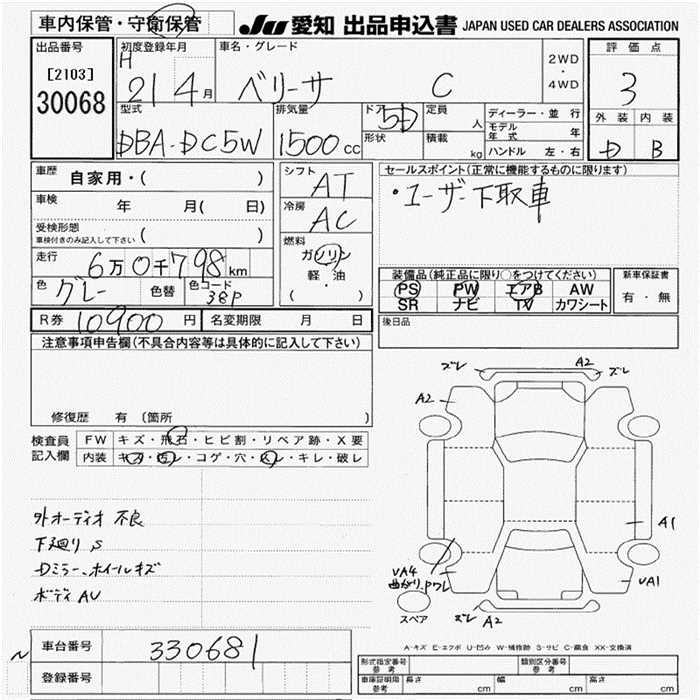 車内保管・守衛保管
JU 愛知 出品申込書 JAPAN USED CAR DEALERS ASSOCIATION
出品番号
[2103]
30068
初度登録年月
H
21 4 月
車名・グレード
ベリーサ C
2WD
・
4WD
評価点
3
外装 内装
D B
型式
DBA-DC5W
排気量
1500 cc
ドア 5D
形状
定員 人
積載 kg
ディーラー・並行
モデル年式 年
ハンドル 左・右
車歴 自家用・( )
車検 年 月( 日)
受検形態
車検付きのみ記入して下さい ( )
走行 6万0千798 km
色 グレー 色替 色コード 38P
シフト AT
冷房 AC
燃料
ガソリン
軽・油
( )
セールスポイント(正常に機能するものに限ります)
・ユーザー下取車
装備品(純正品に限り○をつけてください)
PS PW エアB AW
SR ナビ TV カワシート
新車保証書
有・無
R券 10900 円 名変期限 月 日
後日品
注意事項申告欄(不具合内容等は具体的に記入して下さい)
修復歴 有 〔箇所 〕
検査員
記入欄
FW キズ・飛石・ヒビ割・リペア跡・X要
内装 キズ・汚レ・コゲ・穴・スレ・キレ・破レ
外オーディオ不良
下廻りS
Dミラー、ホイールキズ
ボディAU
ズレ A2 ズレ
A2
A1
VA4
曲がり、ワレ
VA1
スペア
ズレ A2
A-キズ E-エクボ U-凹み W-補修跡 S-サビ C-腐食 XX-交換済
車台番号 330681
登録番号
型式指定番号
参考
類別区分番号
参考
車庫証明用
参考
長さ cm 幅 cm 高さ cm